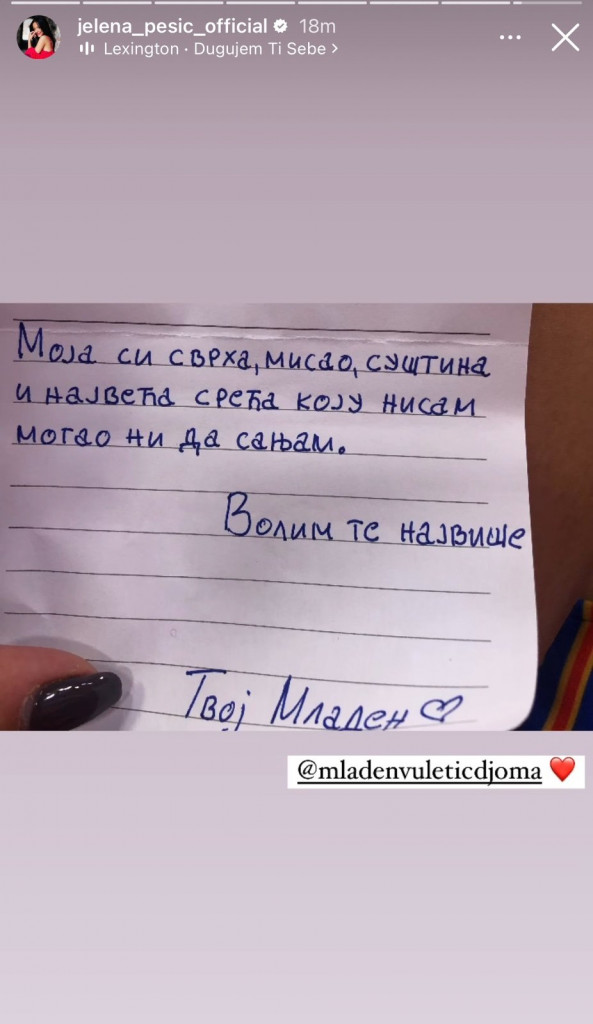 jelena_pesic_official 18m
Lexington · Dugujem Ti Sebe >
Моја си сврха, мисао, суштина
и највећа срећа коју нисам
могао ни да сањам.
Волим те највише
Твој Младен
@mladenvuleticdjoma